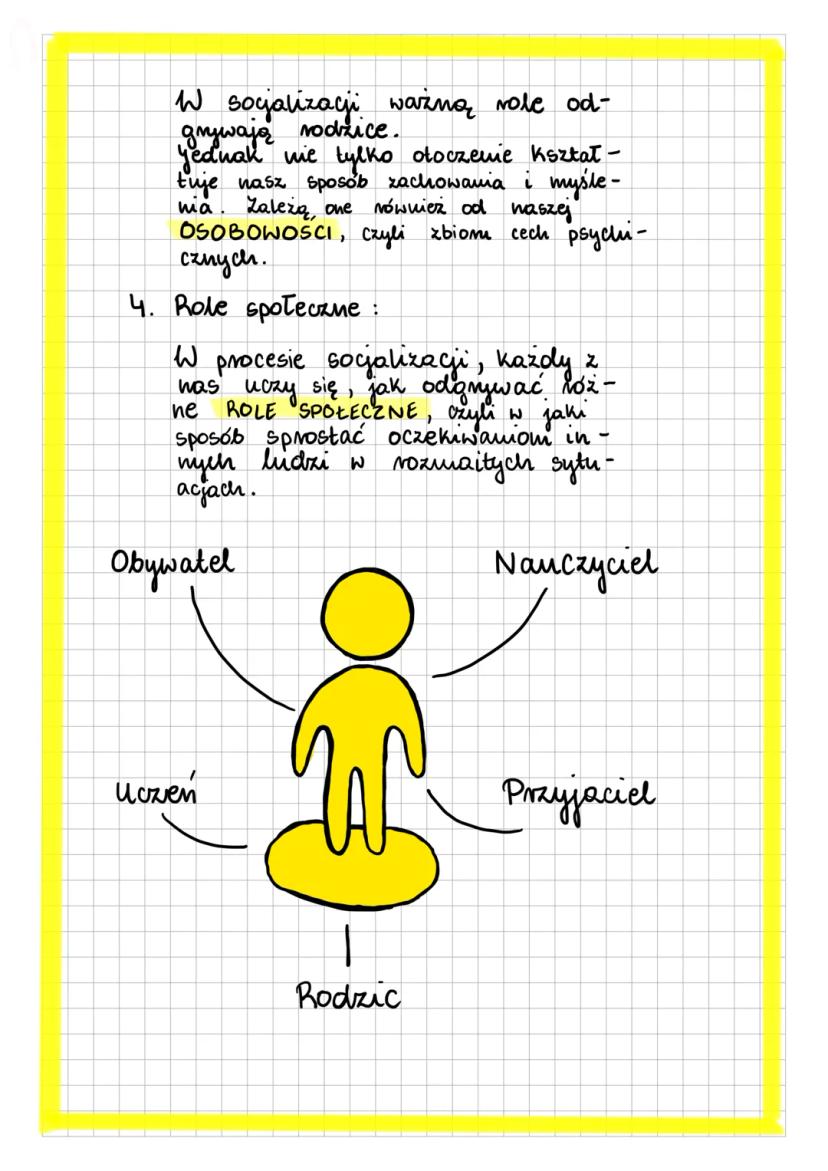 W socjalizacji ważną role od-
grywają rodzice.
Jednak nie tylko otoczenie kształ-
tuje nasz sposób zachowania i myśle-
nia. Zależą one również od naszej
OSOBOWOŚCI, czyli zbioru cech psychi-
cznych.
4. Role społeczne:
W procesie socjalizacji, każdy z
nas uczy się, jak odgrywać róż-
ne ROLE SPOŁECZNE, czyli w jaki
sposób sprostać oczekiwaniom in-
nych ludzi w rozmaitych sytu-
acjach.
Obywatel
Nauczyciel
Uczeń
Przyjaciel
Rodzic